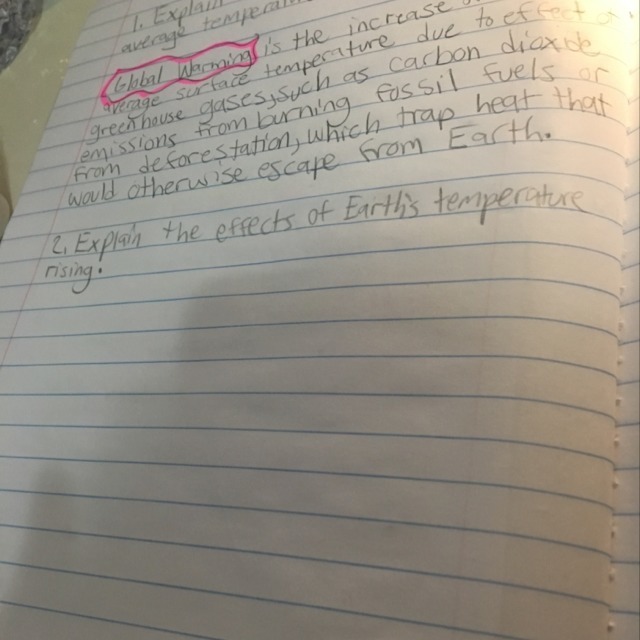 1. Explain
average temperat
Global Warming is the increase
average surface temperature due to effect of
greenhouse gases, such as carbon dioxide
emissions from burning fossil fuels or
from deforestation, which trap heat that
would otherwise escape from Earth.
2. Explain the effects of Earth's temperature
rising.